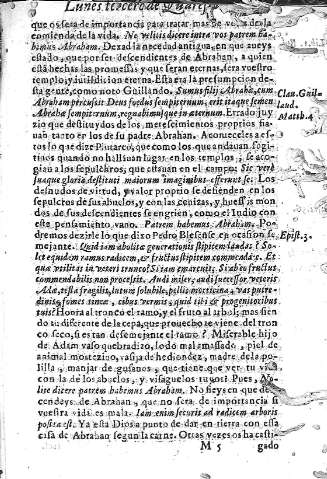 Lunes tercero de Quaresma
que os sera de importancia para tratar mas de veras de la
comienda de la vida. Ne velitis dicere intra vos patrem ha-
bemus Abraham. Dexad la necedad antigua, en que aueys
estado, que por ser descendientes de Abraham, a quien
está hechas las promessas y que seran eternas, sera vuestro
templo, y su edificio eterna. Esta es la presumpcion des-
ta gente, como noto Guillando. Sumus filij Abrahæ, cum
Abraham percussit Deus foedus sempiternum, erit itaque semen
Abrahæ sempiternum, regnabimusque in æternum. Errado juy-
zio que destituydos de los merescimientos proprios fia-
uan tanto en los de su padre Abrahan. Aconuceles a es-
tos lo que dize Plutarco, que como los que andauan fogi-
tiuos quando no hallauan lugar en los templos, se aco-
gian a los sepulchros, que estauan en el campo: Sic verò
suaque gloria destituti maiorum imaginibus efferunt se: des-
nudos de virtud, y valor proprio se defienden en los
sepulcros de sus abuelos, y con las cenizas, y huessos mon-
dos de sus descendientes se engrien, como el Iudio con
este pensamiento vano. Patrem habemus Abraham. Po-
dremos dezirle lo que dixo Pedro Blesense en ocasion se-
mejante. Quid iam abolitæ generationis stipitem laudas? So-
let equidem ramus radicem, & fructus stipitem commendare. Et
quæ vtilitas in veteri trunco? Si iam emarcuit. Si ab eo fructus
commendabilis non processit. Audi miser, audi successor veteris
Adæ, testa fragilis, lutum solubile, pellis morticina, vas putre-
dinis, fomes tineæ, cibus vermis, quid tibi & progenitoribus
tuis? Honra al tronco el ramo, y el fruto al arbol: mas sien-
do tu diferente de la cepa, que prouecho te viene del tron
co seco, si es tan desemejante el ramo? Miserable hijo
de Adam vaso quebradizo, lodo mal amassado, piel de
animal mortezino, vasija de hediondez, madre de la po-
lilla, manjar de gusanos, que tiene que ver tu vida
con la de los abuelos, y visaguelos tuyos? Pues, No
lite dicere patrem habemus Abraham. No seys en que de-
cendeys de Abrahan, que no sera de importancia si
vuestra vida es mala. Iam enim securis ad radicem arboris
posita est. Ya esta Dios a punto de dar en tierra con essa
casa de Abrahan segun la carne. Otras vezes os ha casti-
M 5 gado
Clau. Guil-
laud.
Matth. 4
Epist. 3.